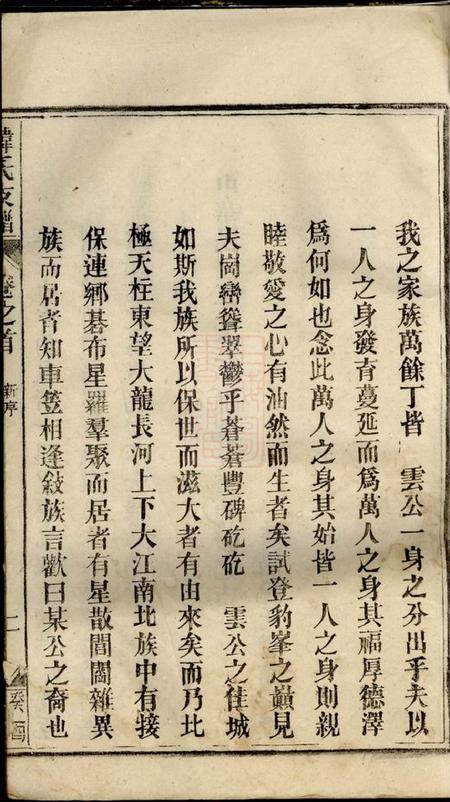 我之家族萬餘丁皆　雲公一身之分出乎夫以
一人之身發育蔓延而爲萬人之身其福厚德澤
爲何如也念此萬人之身其始皆一人之身則親
睦敬愛之心有油然而生者矣試登豹峯之巔見
夫崗巒聳翠鬱乎蒼蒼豐碑矻矻　雲公之佳城
如斯我族所以保世而滋大者有由來矣而乃北
極天柱東望大龍長河上下大江南北族中有接
保連鄉碁布星羅羣聚而居者有星散閭閻雜異
族而居者知車笠相逢敍族言歡曰某公之裔也
韓氏支譜　卷之首　新序　二　癸酉